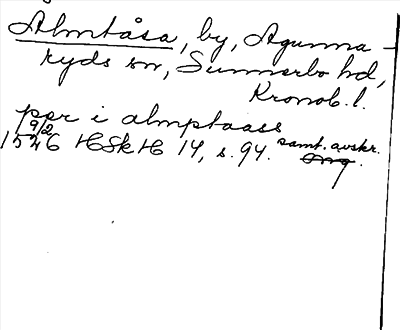 Almtåsa, by, Agunna-
ryds sn, Sunnerbo hd,
Kronob. l.
ppr i almptaass
9/2
1546 HSkH 14, s. 94. samt. avskr.
Orig.